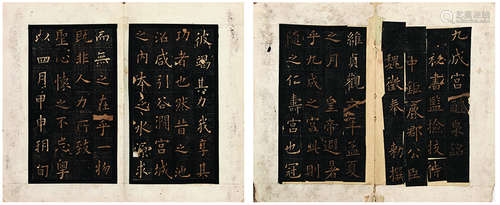 九成宮泉銘
秘書監檢校侍
中鉅鹿郡公臣
魏徵奉 勅撰
維貞觀年孟夏
之月 皇帝避暑
乎九成之宮此則
隨之仁壽宮也冠
彼竭其力我享其
功者也然昔之池
沼咸引谷澗宮城
之内本乏水源求
而無之在乎一物
既非人力所致
聖心懷之不忘粵
以四月甲申朔旬